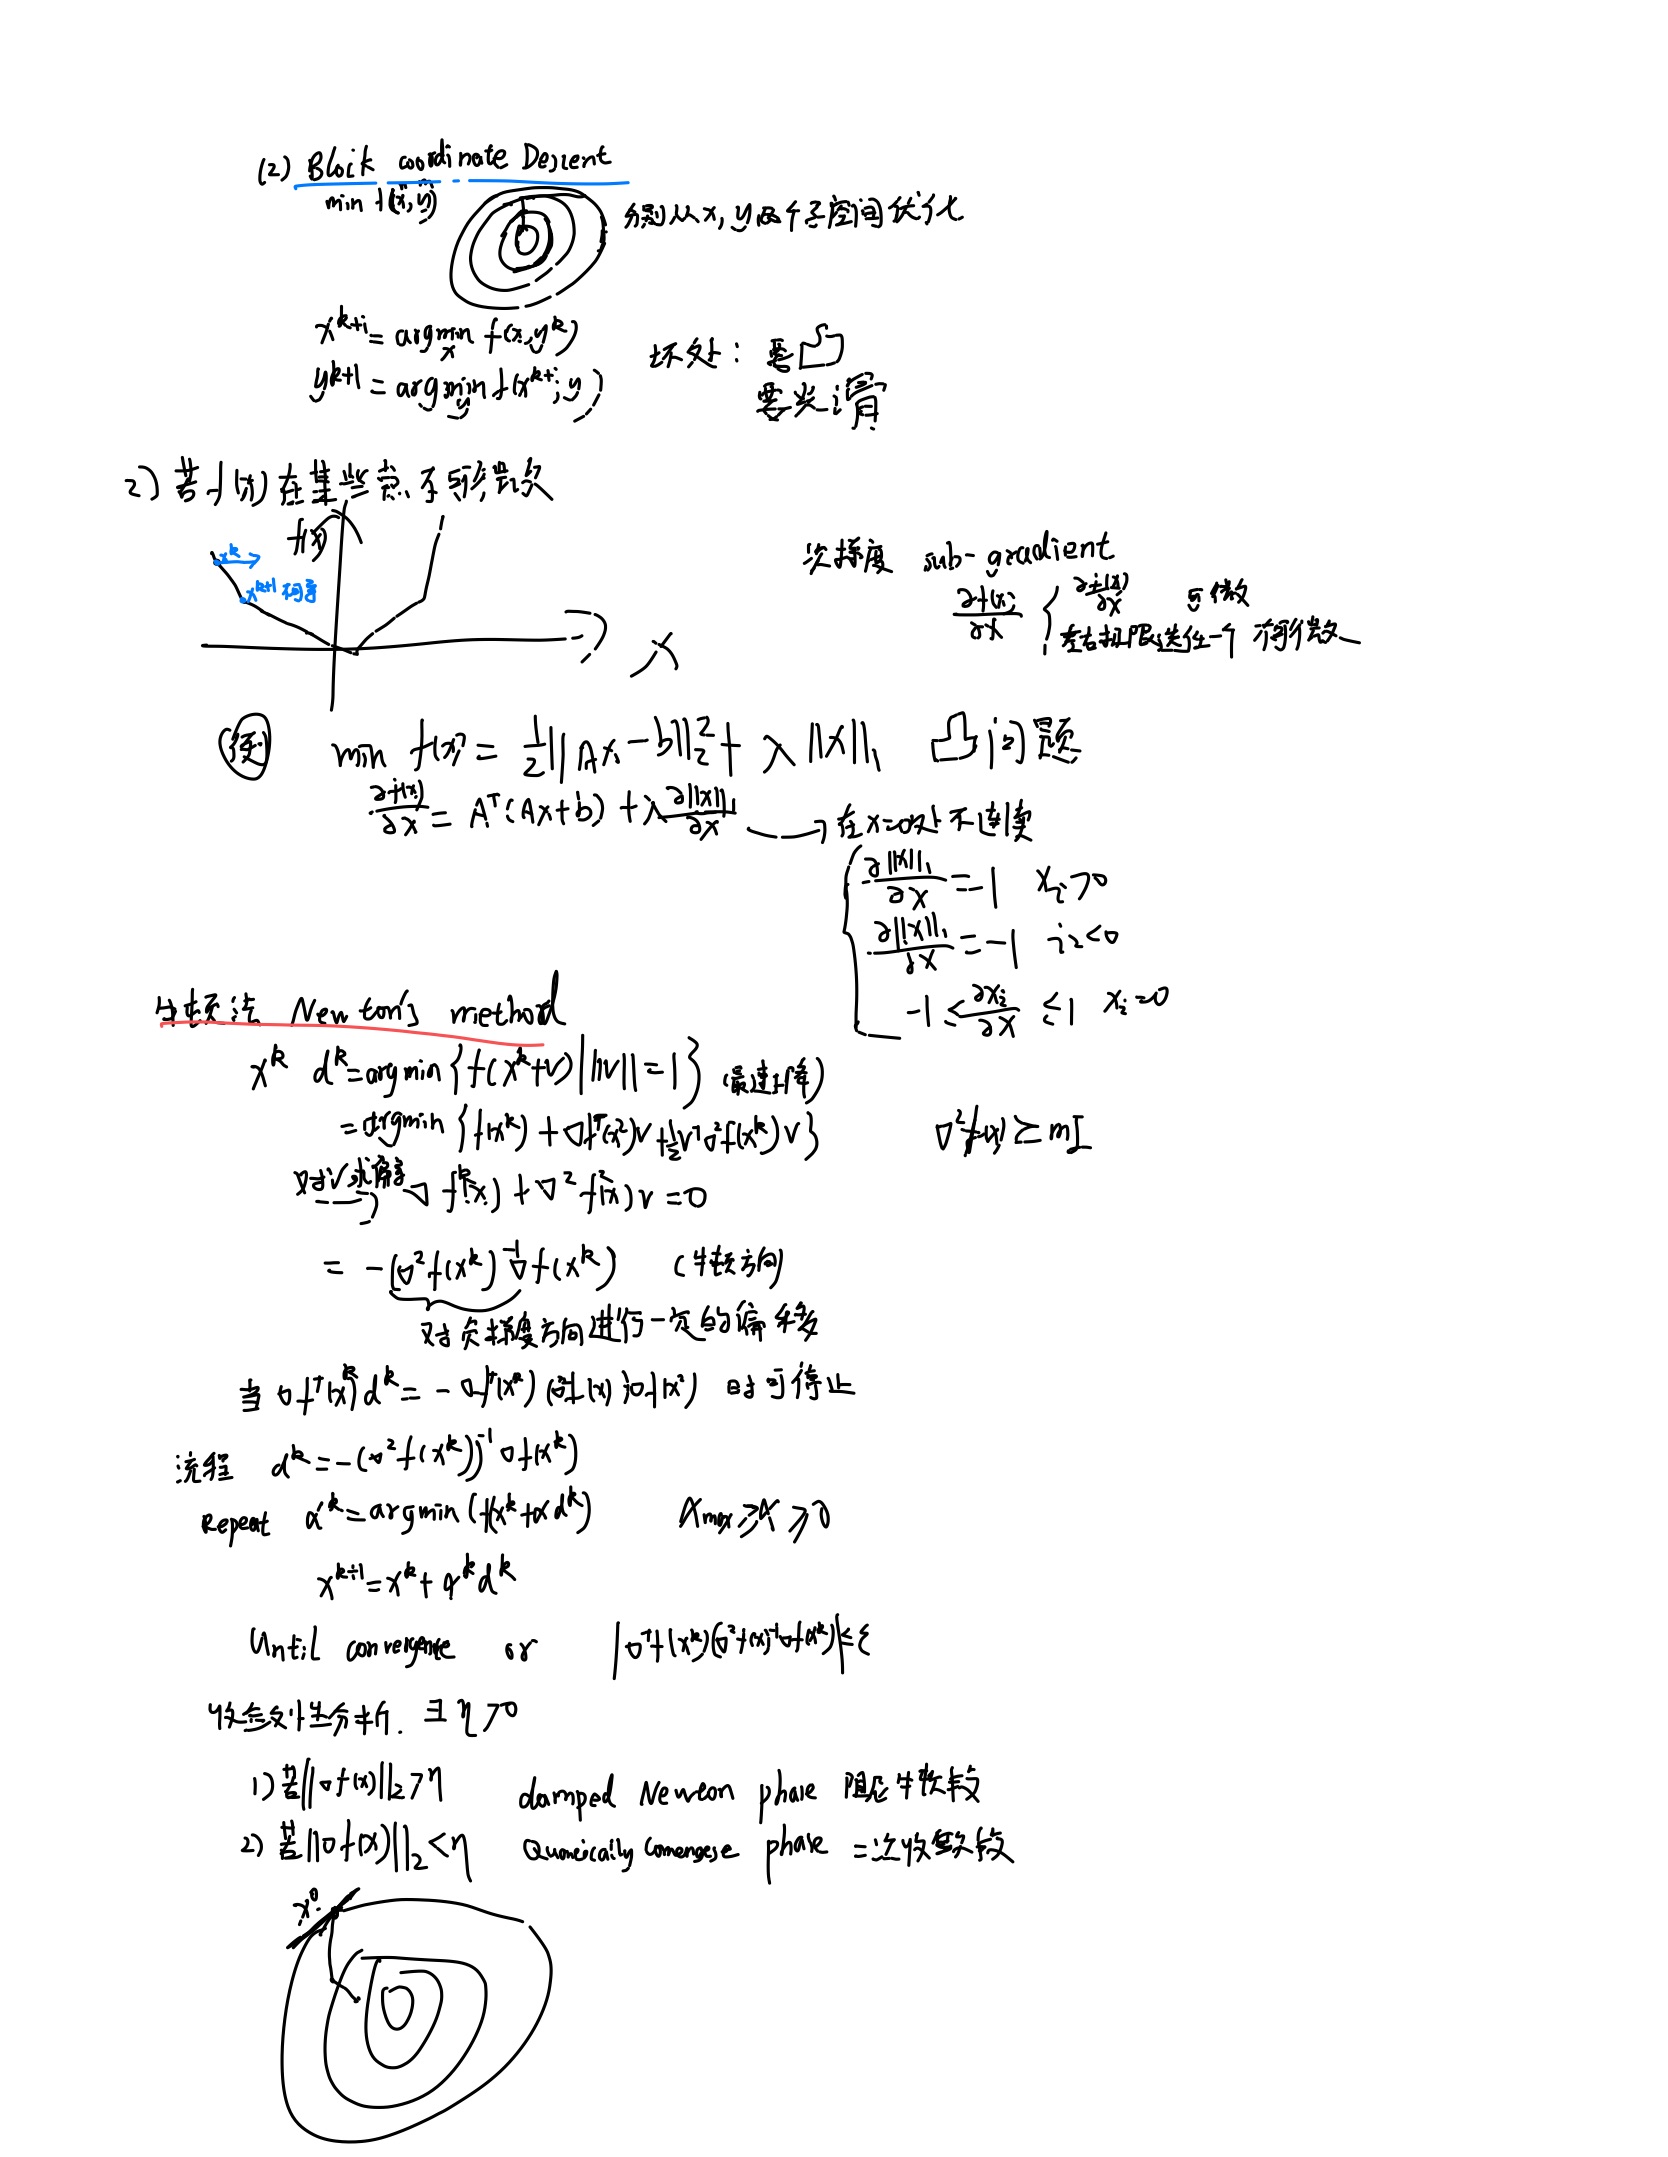 (2) Block coordinate Descent
min f(x,y)
分别从x, y两个子空间优化
x^{k+1} = argmin_x f(x, y^k)
y^{k+1} = argmin_y f(x^{k+1}, y)
坏处： 要凸
要光滑
2) 若f(x)在某些点不可微
f(x)
x^k
x^{k+1}
x
次梯度 sub-gradient
∂f(x)/∂x { ∂f(x)/∂x 可微
左右极限选任一个 不可微
例 min f(x) = 1/2||Ax-b||_2^2 + λ||x||_1 凸问题
∂f(x)/∂x = A^T(Ax+b) + λ ∂||x||_1/∂x → 在x=0处不连续
∂||x||_1/∂x = -1 x_i>0
∂||x||_1/∂x = -1 <0
-1 ≤ ∂x_i/∂x ≤ 1 x_i=0
牛顿法 Newton's method
x^k d^k = argmin{f(x^k+v) | ||v||=1} (最速下降)
= argmin{f(x^k) + ∇f^T(x^2)v + 1/2 v^T ∇^2 f(x^k) v} ∇^2 f(x) ≥ mI
对v求偏导 → ∇f(x^k) + ∇^2 f(x^2) v = 0
= -(∇^2 f(x^k))^{-1} ∇f(x^k) (牛顿方向)
对负梯度方向进行一定的偏移
当 ∇f^T(x^k) d^k = -∇f^T(x^k) 时可停止
流程 d^k = -(∇^2 f(x^k))^{-1} ∇f(x^k)
Repeat α^k = argmin(f(x^k + αd^k) α_max ≥ α ≥ 0
x^{k+1} = x^k + α^k d^k
Until convergence or |∇^T f(x^k)(∇^2 f(x))^{-1} ∇f(x^k)| ≤ ε
收敛性分析. ∃ η>0
1) 若||∇f(x)||_2 > η damped Newton phase 阻尼牛顿段
2) 若||∇f(x)||_2 < η phase 二次收敛段
x^0